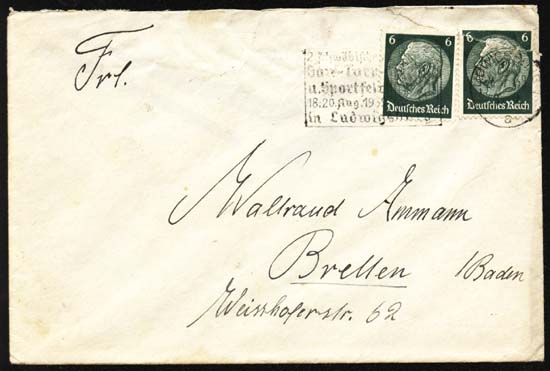 6 6
Gau-Turn-
u. Sportfest
18.-20. Aug. 19
in Ludwigsburg
Deutsches Reich Deutsches Reich
Frl.
Waltraud Ammann
Bretten /Baden
Weisshoferstr. 62